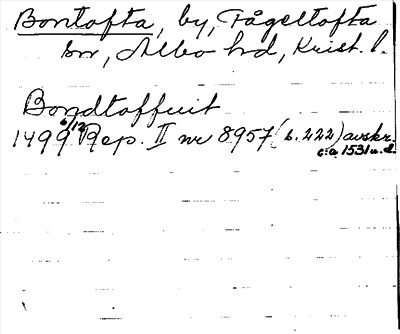 Bontofta, by, Fågeltofta
sn, Albo hd, Krist. l.
Bondtoffuit
1499 6/12 Rep. II nr 8957 (s. 222) avskr.
c:a 1531 u.d.